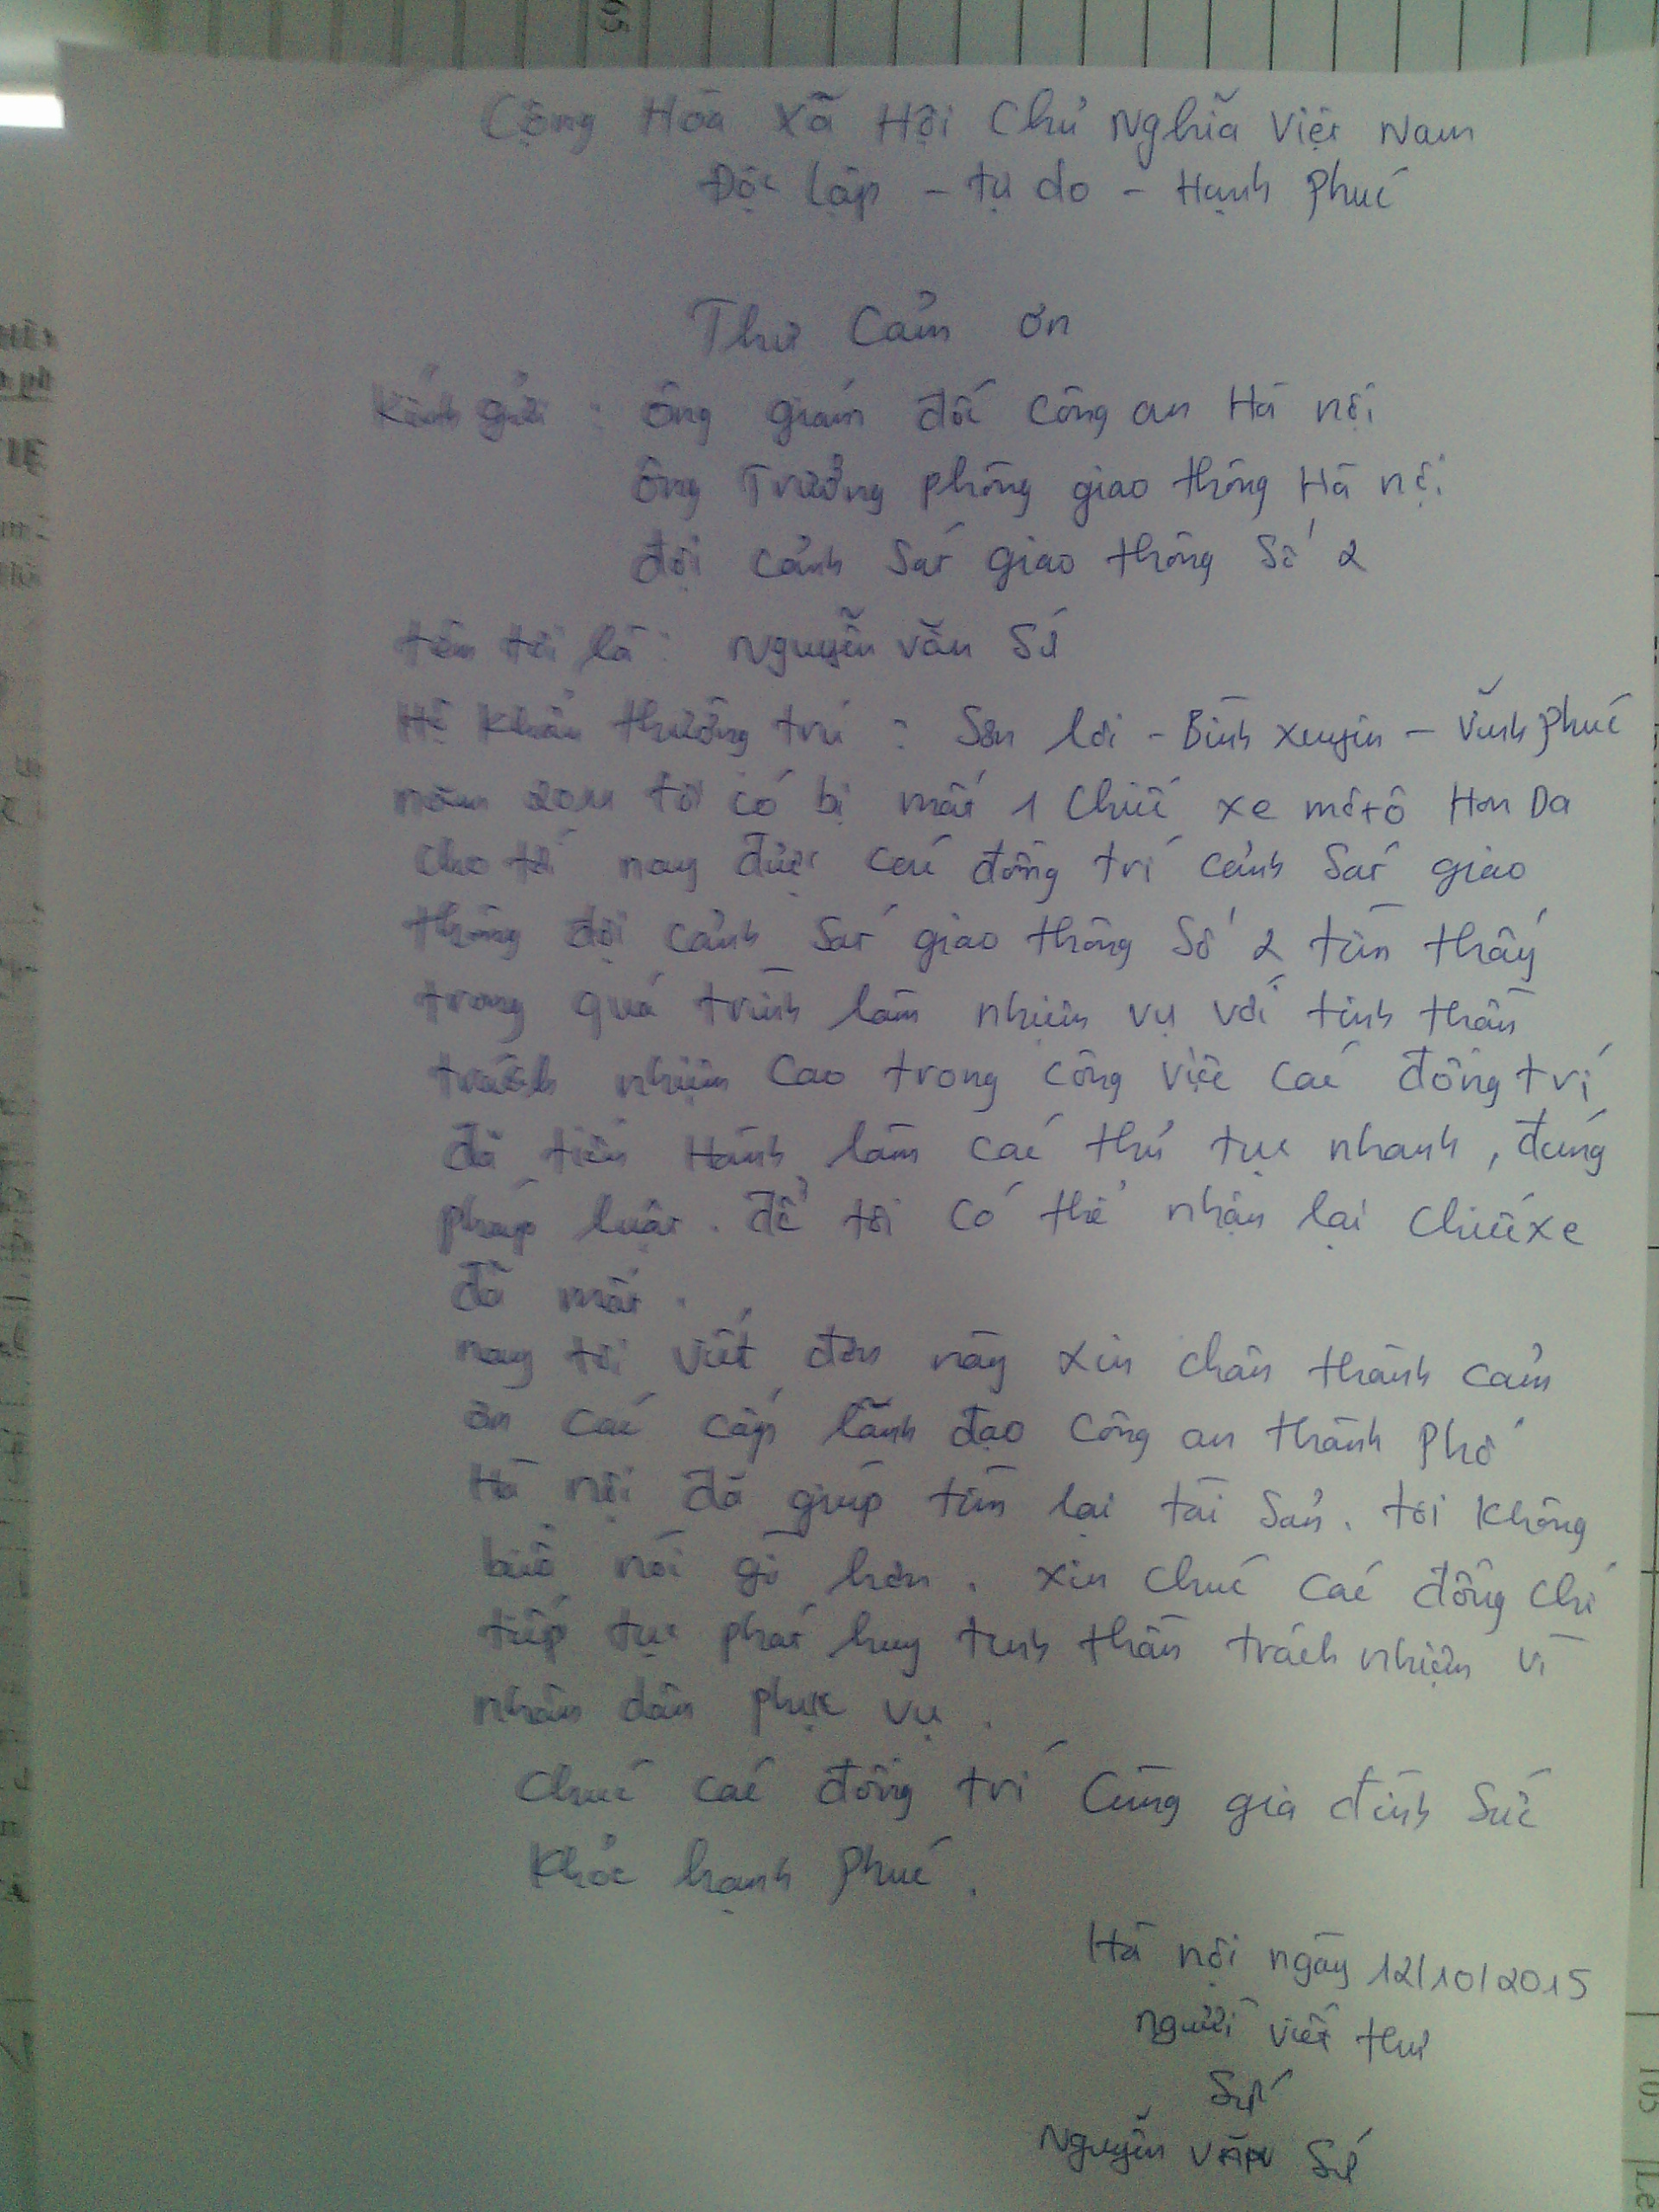 Cộng Hòa Xã Hội Chủ Nghĩa Việt Nam
Độc lập - tự do - Hạnh phúc
Thư Cảm ơn
Kính gửi : ông giám đốc công an Hà nội
ông Trưởng phòng giao thông Hà nội
đội cảnh sát giao thông số 2
tên tôi là : Nguyễn văn Sứ
Hộ khẩu thường trú : Sơn lôi - Bình xuyên - Vĩnh phúc
năm 2011 tôi có bị mất 1 chiếc xe môtô Hon Da
cho tới nay được các đồng trí cảnh sát giao
thông đội cảnh sát giao thông số 2 tìm thấy
trong quá trình làm nhiệm vụ với tinh thần
trách nhiệm cao trong công việc các đồng trí
đã tiến Hành làm các thủ tục nhanh, đúng
pháp luật. để tôi có thể nhận lại chiếc xe
đã mất.
nay tôi viết đơn này xin chân thành cảm
ơn các cấp lãnh đạo công an thành phố
Hà nội đã giúp tìm lại tài sản. tôi không
biết nói gì hơn. xin chúc các đồng chí
tiếp tục phát huy tinh thần trách nhiệm vì
nhân dân phục vụ.
chúc các đồng trí cùng gia đình sức
khỏe hạnh phúc.
Hà nội ngày 12/10/2015
người viết thư
Sứ
Nguyễn văn Sứ
105